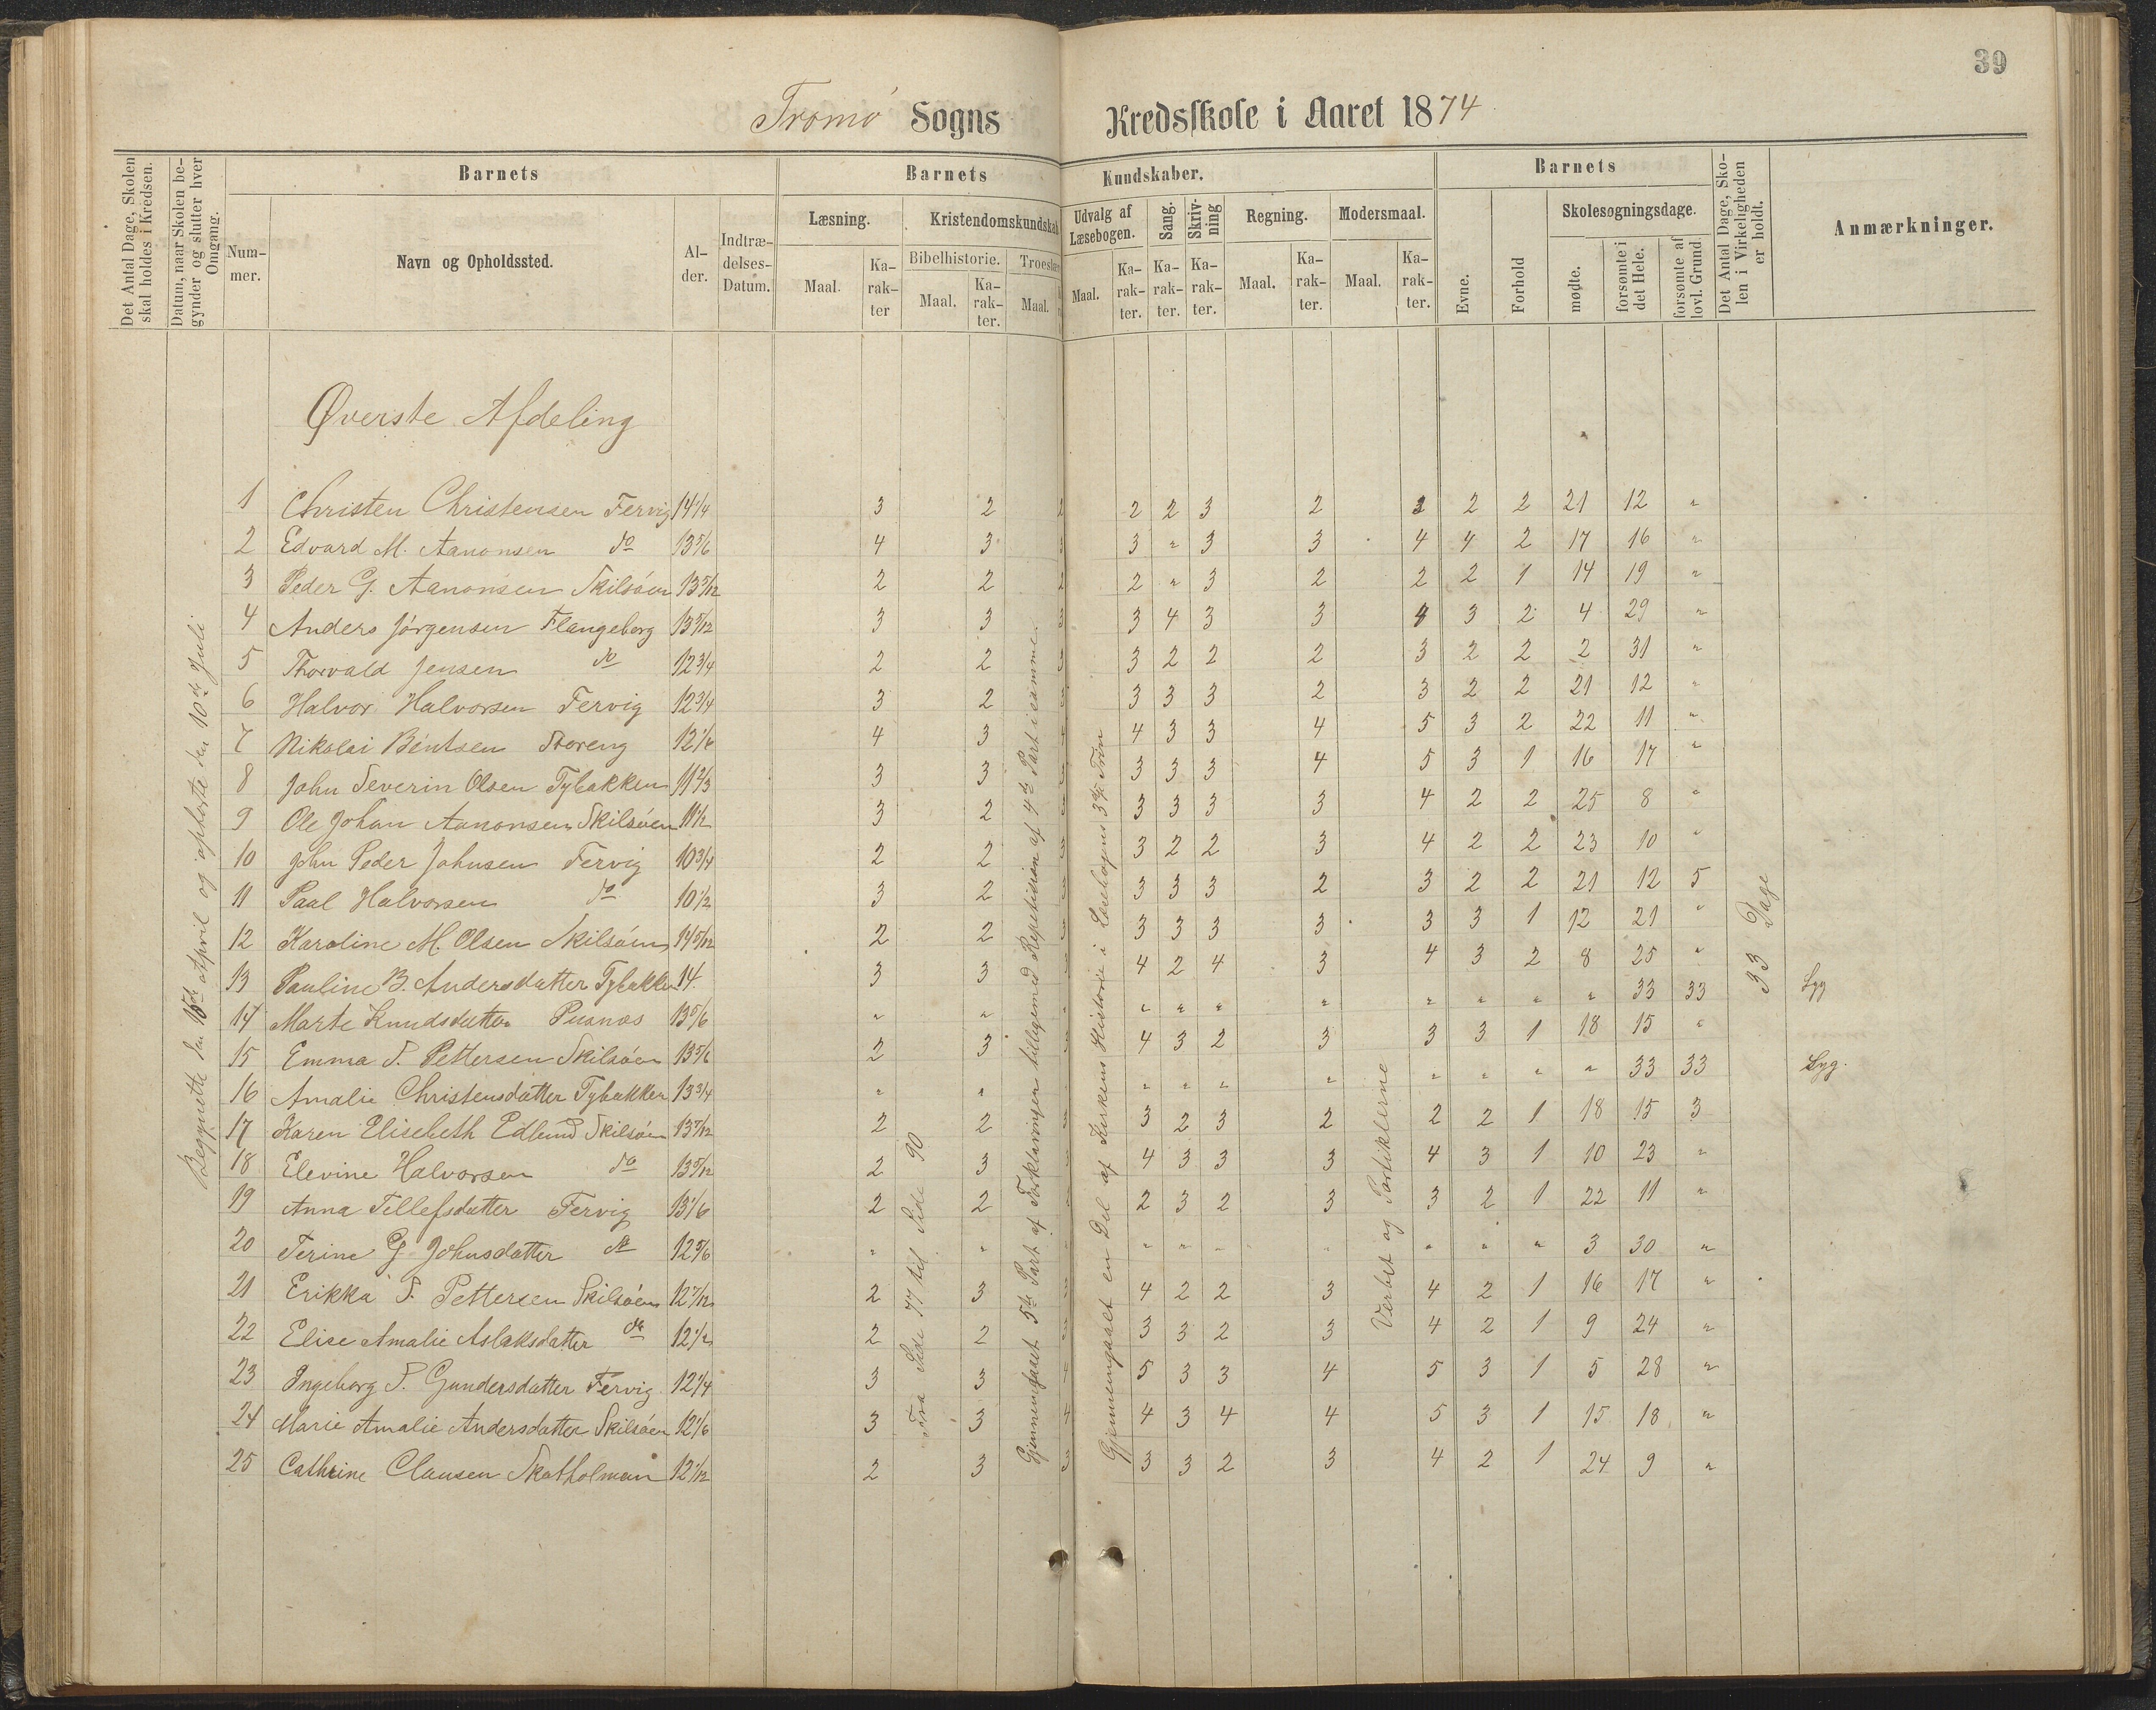 39
Tromø Sogns Kredsskole i Aaret 1874
Det Antal Dage, Skolen skal holdes i Kredsen.
Datum, naar Skolen begynder og slutter hver Omgang.
Barnets
Nummer.
Navn og Opholdssted.
Alder.
Indtrædelses-Datum.
Barnets Kundskaber.
Læsning. Maal. Karakter
Kristendomskundskab
Bibelhistorie. Maal. Karakter.
Troeslære Maal.
Udvalg af Læsebogen. Maal. Karakter.
Sang. Karakter.
Skrivning Karakter.
Regning. Maal. Karakter.
Modersmaal. Maal. Karakter.
Barnets
Evne.
Forhold
Skolesøgningsdage.
mødte.
forsømte i det Hele.
forsømte af lovl. Grund.
Det Antal Dage, Skolen i Virkeligheden er holdt.
Anmærkninger.
Øverste Afdeling
1 Christen Christensen Fervig 14 1/4 3 2 2 2 2 3 2 3 2 2 21 12 "
2 Edvard M. Aanonsen do 13 5/6 4 3 3 3 " 3 3 4 4 2 17 16 "
3 Peder G. Aanonsen Skilsøen 13 5/12 2 2 2 2 " 3 2 2 2 1 14 19 "
4 Anders Jørgensen Flangeborg 13 5/12 3 3 3 3 4 3 3 4 3 2 4 29 "
5 Thorvald Jensen do 12 3/4 2 2 3 3 2 2 2 3 2 2 2 31 "
6 Halvor Halvorsen Fervig 12 3/4 3 2 3 3 3 3 2 3 2 2 21 12 "
7 Nikolai Bentsen Storeng 12 1/6 4 3 4 4 3 3 4 5 3 2 22 11 "
8 John Severin Olsen Tybakken 11 2/3 3 3 3 3 3 3 4 5 3 1 16 17 "
9 Ole Johan Aanonsen Skilsøen 11 1/2 3 2 3 3 3 3 3 4 2 2 25 8 "
10 John Peder Johnsen Fervig 10 3/4 2 2 3 3 2 2 3 4 2 2 23 10 "
11 Paal Halvorsen do 10 1/2 3 2 3 3 3 3 2 3 2 2 21 12 5
12 Karoline M. Olsen Skilsøen 14 5/12 2 2 3 3 3 3 3 3 3 1 12 21 "
13 Pauline B. Andersdatter Tybakken 14. 3 3 3 4 2 4 3 4 3 2 8 25 "
14 Marte Knudsdatter Pusnæs 13 5/6 " " " " " " " " " " " 33 33 Syg
15 Emma S. Pettersen Skilsøen 13 5/6 2 3 3 4 3 2 3 3 3 1 18 15 "
16 Amalie Christensdatter Tybakken 13 3/4 " " " " " " " " " " " 33 33 Syg.
17 Karen Elisebeth Edlund Skilsøen 13 7/12 2 2 3 3 2 3 2 2 2 1 18 15 3
18 Elevine Halvorsen do 13 5/12 2 3 3 4 3 3 3 4 3 1 10 23 "
19 Anna Tellefsdatter Fervig 13 1/6 2 2 2 2 3 2 3 3 2 1 22 11 "
20 Terine G. Johnsdatter do 12 5/6 " " " " " " " " " " 3 30 "
21 Erikka S. Pettersen Skilsøen 12 7/12 2 3 3 4 2 2 3 4 2 1 16 17 "
22 Elise Amalie Aslaksdatter do 12 1/2 2 2 3 3 3 2 3 4 2 1 9 24 "
23 Ingeborg S. Gundersdatter Fervig 12 1/4 3 3 4 5 3 3 4 5 3 1 5 28 "
24 Marie Amalie Andersdatter Skilsøen 12 1/6 3 3 4 4 3 4 4 5 3 1 15 18 "
25 Cathrine Clausen Skatholmen 12 1/12 2 3 3 3 3 2 3 4 2 1 24 9 "
Begyndte den 15de April og ophørte den 10de Juli
Fra Side 77 til Side 90
Gjennemgaaet 5te Part af Forklaringen tilligemed Repetition af 4de Part isammen.
Gjennemgaaet en Del af Kirkens Historie i Læsebogens 3die Trin
Verbet og Partiklerne
33 Dage